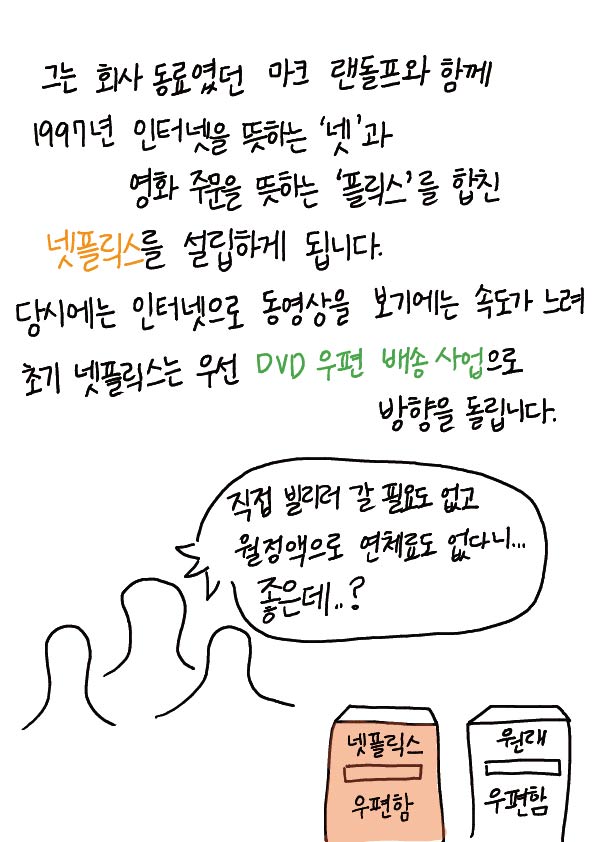 그는 회사 동료였던 마크 랜돌프와 함께
1997년 인터넷을 뜻하는 '넷'과
영화 주문을 뜻하는 '플릭스'를 합친
넷플릭스를 설립하게 됩니다.
당시에는 인터넷으로 동영상을 보기에는 속도가 느려
초기 넷플릭스는 우선 DVD 우편 배송 사업으로
방향을 돌립니다.
직접 빌리러 갈 필요도 없고
월정액으로 연체료도 없다니...
좋은데..?
넷플릭스
우편함
원래
우편함